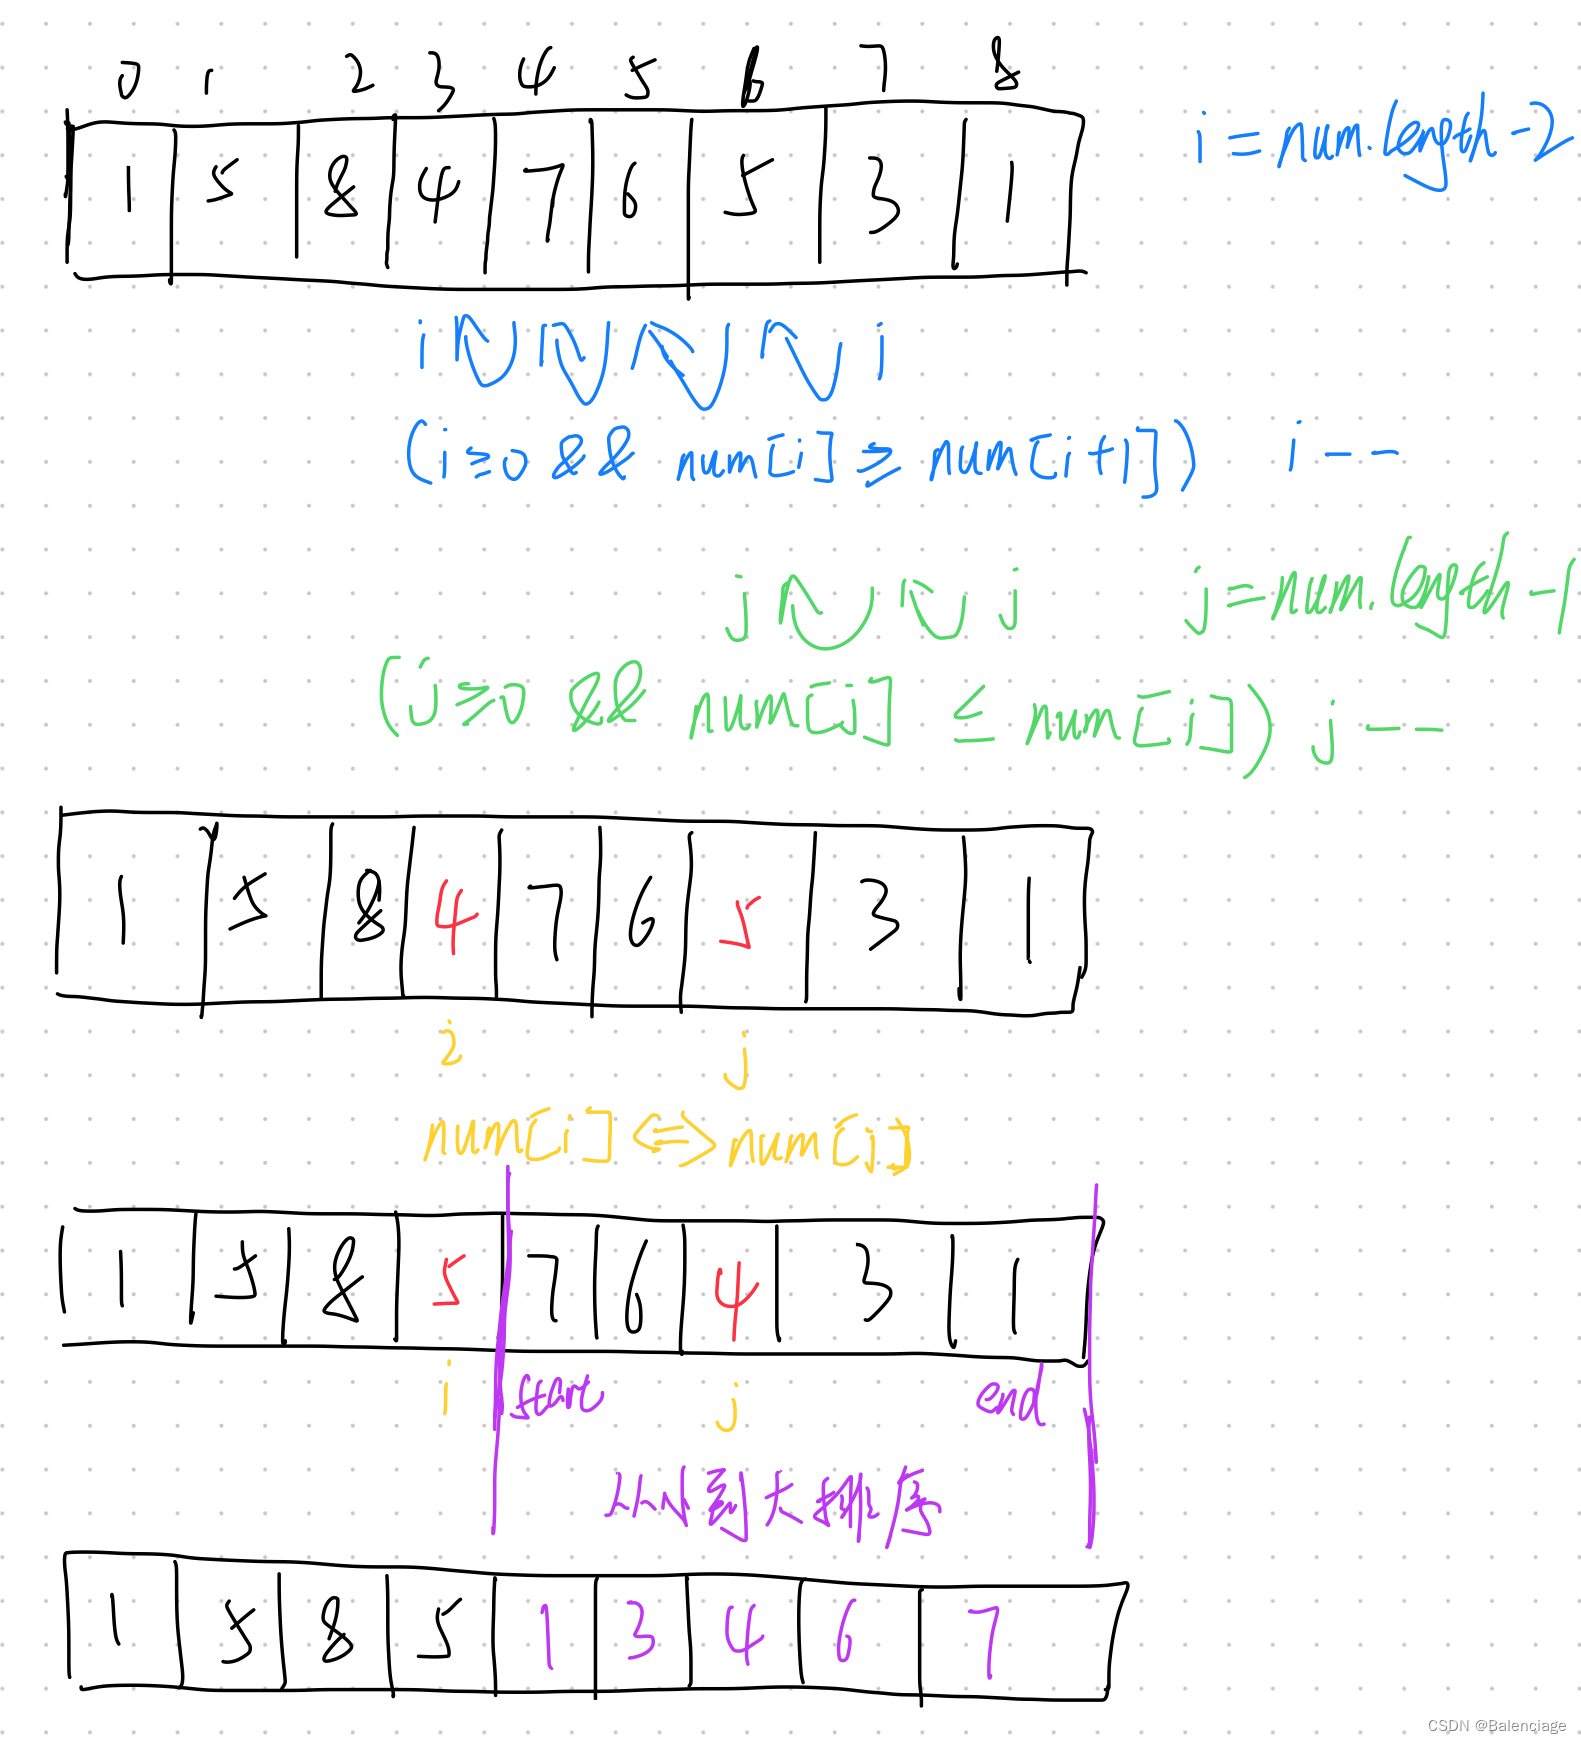 0 1 2 3 4 5 6 7 8
1 5 8 4 7 6 5 3 1
i = num.length-2
i i
(i≥0 && num[i] ≥ num[i+1]) i--
j j j=num.length-1
(j≥0 && num[j] ≤ num[i]) j--
1 5 8 4 7 6 5 3 1
i j
num[i] ⇔ num[j]
1 5 8 5 7 6 4 3 1
i start j end
从小到大排序
1 5 8 5 1 3 4 6 7
CSDN @Balenciage